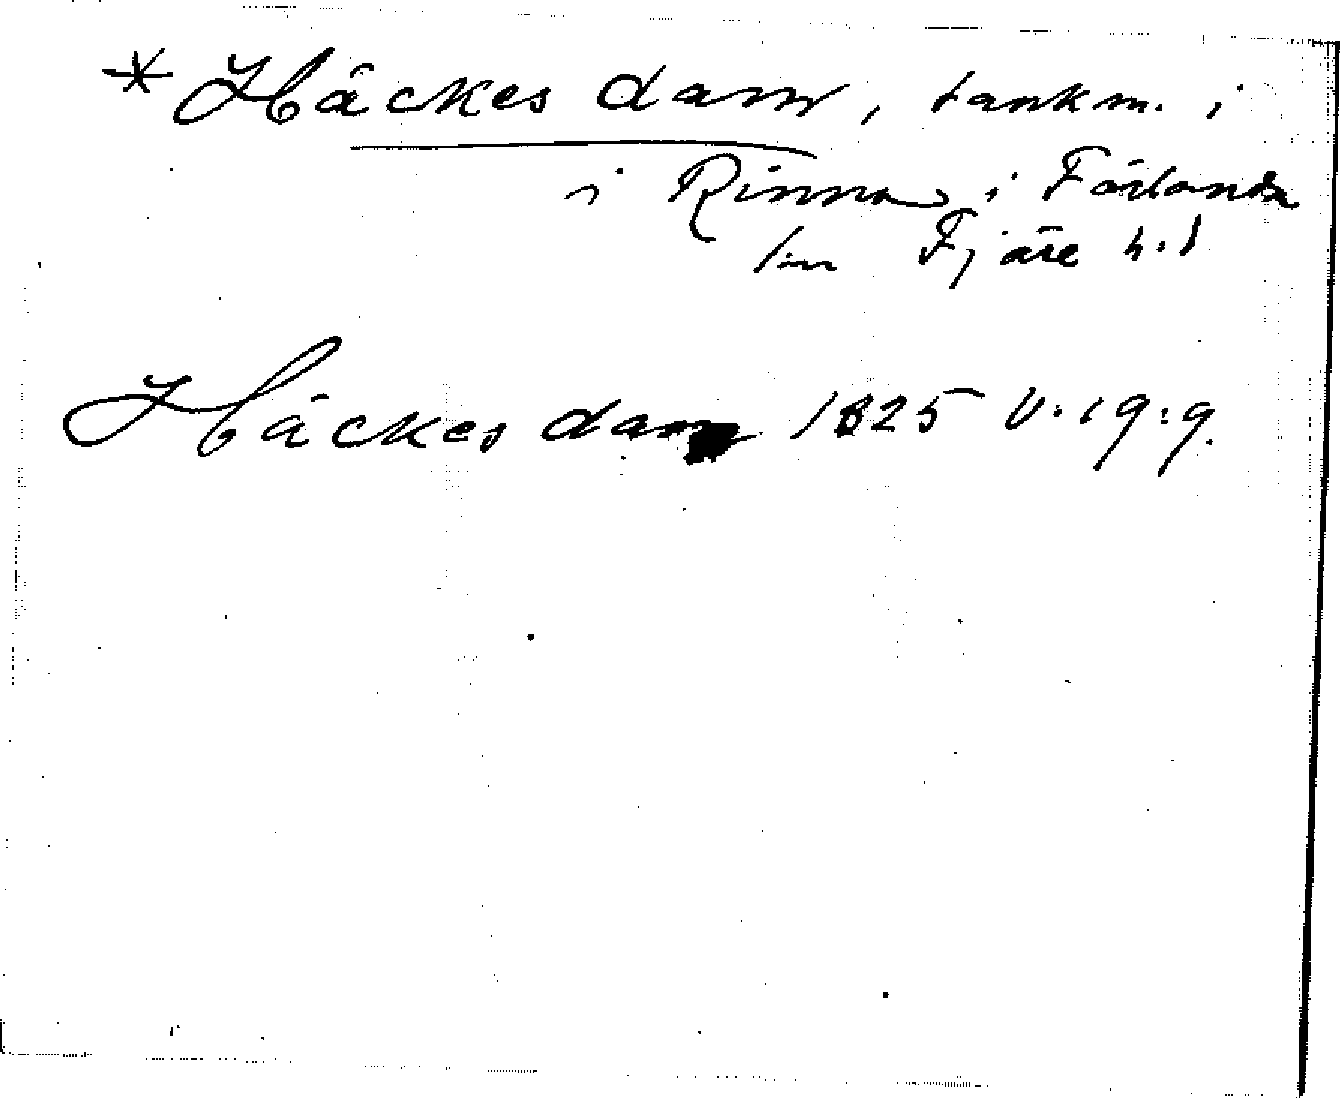 * Häckes dam, tankm. i
i Rinna i Förlanda
sn Fjäre h.d
Häckes dam 1825 V.19:9.